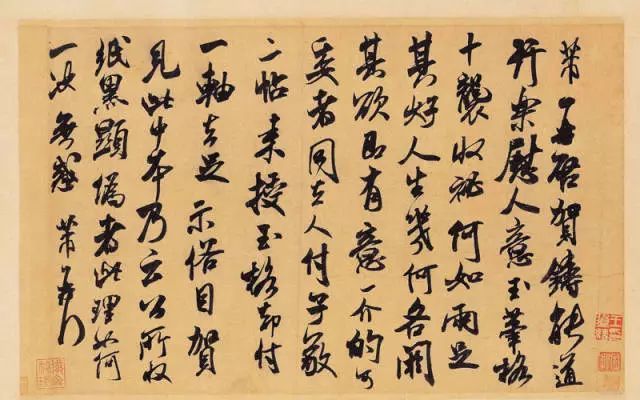 芾再啓賀鑄能道
行樂慰人意玉筆格
十襲收祕何如兩足
其好人生幾何各閼
其欲即有意一介的可
委者同去人付子敬
二帖來授玉格却付
一軸去足示俗目賀
見此中本乃云公所收
紙黑顯僞者此理如何
一決無惑 芾頓首